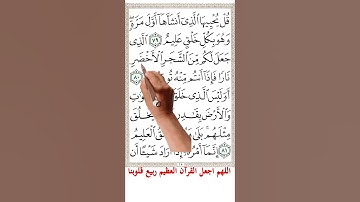 قُلْ يُحْيِيهَا ٱلَّذِىٓ أَنشَأَهَآ أَوَّلَ مَرَّةٍ
وَهُوَ بِكُلِّ خَلْقٍ عَلِيمٌ ٧٩ ٱلَّذِى
جَعَلَ لَكُم مِّنَ ٱلشَّجَرِ ٱلْأَخْضَرِ
نَارًا فَإِذَآ أَنتُم مِّنْهُ ٨٠
أَوَلَيْسَ ٱلَّذِى خَلَقَ
وَٱلْأَرْضَ بِقَٰدِرٍ يَخْلُقَ
مِثْلَهُم بَلَىٰ ٱلْعَلِيمُ
٨١ إِنَّمَآ أَمْرُهُۥٓ إِذَآ أَرَادَ شَيْـًٔا أَن
اللهم اجعل القرآن العظيم ربيع قلوبنا